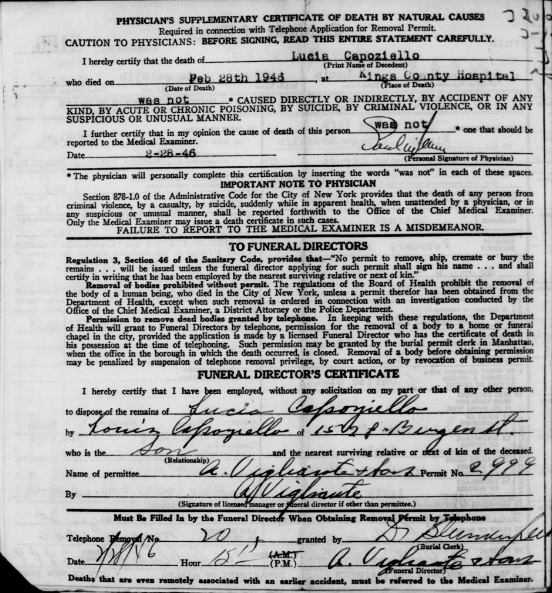 PHYSICIAN'S SUPPLEMENTARY CERTIFICATE OF DEATH BY NATURAL CAUSES
Required in connection with Telephone Application for Removal Permit.
CAUTION TO PHYSICIANS: BEFORE SIGNING, READ THIS ENTIRE STATEMENT CAREFULLY.
I hereby certify that the death of Lucia Capoziello
(Print Name of Decedent)
who died on Feb 28th 1946, at Kings County Hospital
(Date of Death) (Place of Death)
was not * CAUSED DIRECTLY OR INDIRECTLY, BY ACCIDENT OF ANY
KIND, BY ACUTE OR CHRONIC POISONING, BY SUICIDE, BY CRIMINAL VIOLENCE, OR IN ANY
SUSPICIOUS OR UNUSUAL MANNER.
I further certify that in my opinion the cause of death of this person was not * one that should be
reported to the Medical Examiner.
Date 2-28-46
(Personal Signature of Physician)
* The physician will personally complete this certification by inserting the words "was not" in each of these spaces.
IMPORTANT NOTE TO PHYSICIAN
Section 878-1.0 of the Administrative Code for the City of New York provides that the death of any person from
criminal violence, by a casualty, by suicide, suddenly while in apparent health, when unattended by a physician, or in
any suspicious or unusual manner, shall be reported forthwith to the Office of the Chief Medical Examiner.
Only the Medical Examiner may issue a death certificate in such cases.
FAILURE TO REPORT TO THE MEDICAL EXAMINER IS A MISDEMEANOR.
TO FUNERAL DIRECTORS
Regulation 3, Section 46 of the Sanitary Code, provides that—"No permit to remove, ship, cremate or bury the
remains . . . will be issued unless the funeral director applying for such permit shall sign his name . . . and shall
certify in writing that he has been employed by the nearest surviving relative or next of kin."
Removal of bodies prohibited without permit. The regulations of the Board of Health prohibit the removal of
the body of a human being, who died in the City of New York, unless a permit therefor has been obtained from the
Department of Health, except when such removal is ordered in connection with an investigation conducted by the
Office of the Chief Medical Examiner, a District Attorney or the Police Department.
Permission to remove dead bodies granted by telephone. In keeping with these regulations, the Department
of Health will grant to Funeral Directors by telephone, permission for the removal of a body to a home or funeral
chapel in the city, provided the application is made by a licensed Funeral Director who has the certificate of death in
his possession at the time of telephoning. Such permission may be granted by the burial permit clerk in Manhattan,
when the office in the borough in which the death occurred, is closed. Removal of a body before obtaining permission
may be penalized by suspension of telephone removal privilege, by court action, or by revocation of business permit.
FUNERAL DIRECTOR'S CERTIFICATE
I hereby certify that I have been employed, without any solicitation on my part or that of any other person,
to dispose of the remains of Lucia Capoziello
by Louis Capoziello of Bergen st
who is the son and the nearest surviving relative or next of kin of the deceased.
(Relationship)
Name of permittee A. Vigliante & Sons Permit No. 2999
By A Vigliante
(Signature of licensed manager or funeral director if other than permittee.)
Must Be Filled In by the Funeral Director When Obtaining Removal Permit by Telephone
Telephone Removal No. 20 granted by
(Burial Clerk)
Date 2/28/46 Hour (A.M.) (P.M.) A. Vigliante & Sons
(Funeral Director)
Deaths that are even remotely associated with an earlier accident, must be referred to the Medical Examiner.